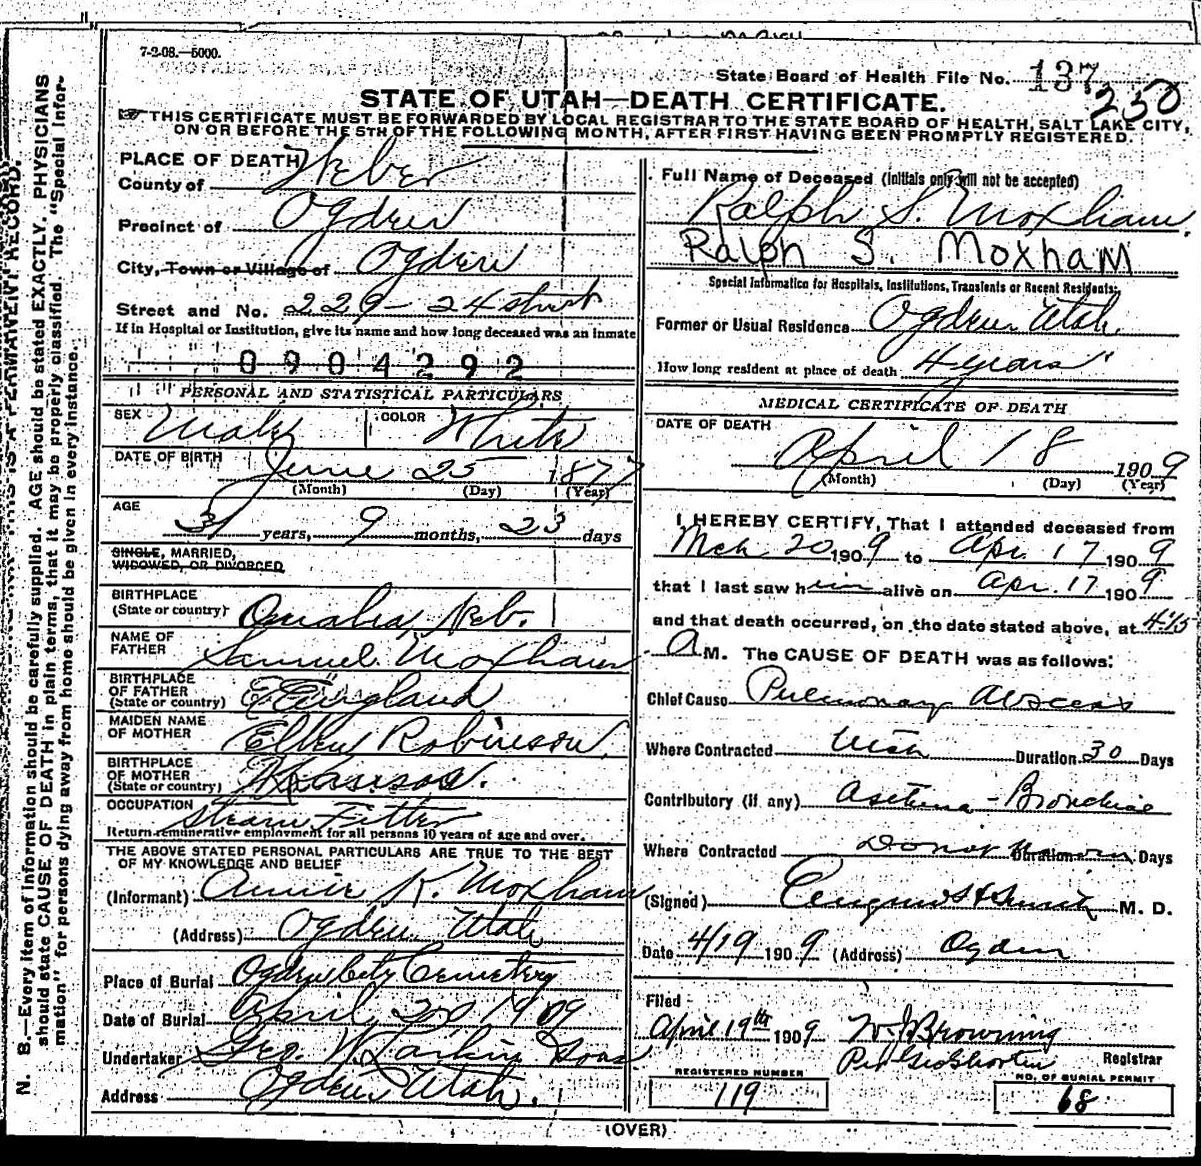 7-2-08.—5000.
State Board of Health File No. 137
250
STATE OF UTAH—DEATH CERTIFICATE.
THIS CERTIFICATE MUST BE FORWARDED BY LOCAL REGISTRAR TO THE STATE BOARD OF HEALTH, SALT LAKE CITY,
ON OR BEFORE THE 5TH OF THE FOLLOWING MONTH, AFTER FIRST HAVING BEEN PROMPTLY REGISTERED.
PLACE OF DEATH
County of Weber
Precinct of Ogden
City, Town or Village of Ogden
Street and No. 229 - 24 street
If in Hospital or Institution, give its name and how long deceased was an inmate
0904292
PERSONAL AND STATISTICAL PARTICULARS
SEX Male COLOR White
DATE OF BIRTH June 25 1877
(Month) (Day) (Year)
AGE
31 years, 9 months, 23 days
SINGLE, MARRIED,
WIDOWED, OR DIVORCED
BIRTHPLACE
(State or country) Omaha, Neb.
NAME OF
FATHER Samuel Moxham
BIRTHPLACE
OF FATHER
(State or country) England
MAIDEN NAME
OF MOTHER Ellen Robinson
BIRTHPLACE
OF MOTHER
(State or country) Kansas.
OCCUPATION Steam Fitter
Return remunerative employment for all persons 10 years of age and over.
THE ABOVE STATED PERSONAL PARTICULARS ARE TRUE TO THE BEST
OF MY KNOWLEDGE AND BELIEF
(Informant) Annie K. Moxham
(Address) Ogden Utah
Place of Burial Ogden City Cemetery
Date of Burial April 20, 1909
Undertaker Geo. W. Larkin Sons
Address Ogden Utah.
Full Name of Deceased (initials only will not be accepted)
Ralph S. Moxham.
Ralph S. Moxham
Special Information for Hospitals, Institutions, Transients or Recent Residents:
Former or Usual Residence Ogden Utah
How long resident at place of death 4 years
MEDICAL CERTIFICATE OF DEATH
DATE OF DEATH
April 18 1909
(Month) (Day) (Year)
I HEREBY CERTIFY, That I attended deceased from
Mch 20 1909 to Apr. 17 1909
that I last saw him alive on Apr. 17 1909
and that death occurred, on the date stated above, at 4:15
A M. The CAUSE OF DEATH was as follows:
Chief Cause Pulmonary Abscess
Where Contracted Utah Duration 30 Days
Contributory (if any) Asthma - Bronchial
Where Contracted Do not Known Duration Days
(Signed) M. D.
Date 4/19 1909 (Address) Ogden
Filed
April 19th 1909 W J Browning
Per Registrar
REGISTERED NUMBER
119
NO. OF BURIAL PERMIT
68
(OVER)
N. B.—Every item of information should be carefully supplied. AGE should be stated EXACTLY. PHYSICIANS
should state CAUSE OF DEATH in plain terms, that it may be properly classified. The "Special Infor-
mation" for persons dying away from home should be given in every instance.
IS A PERMANENT RECORD.